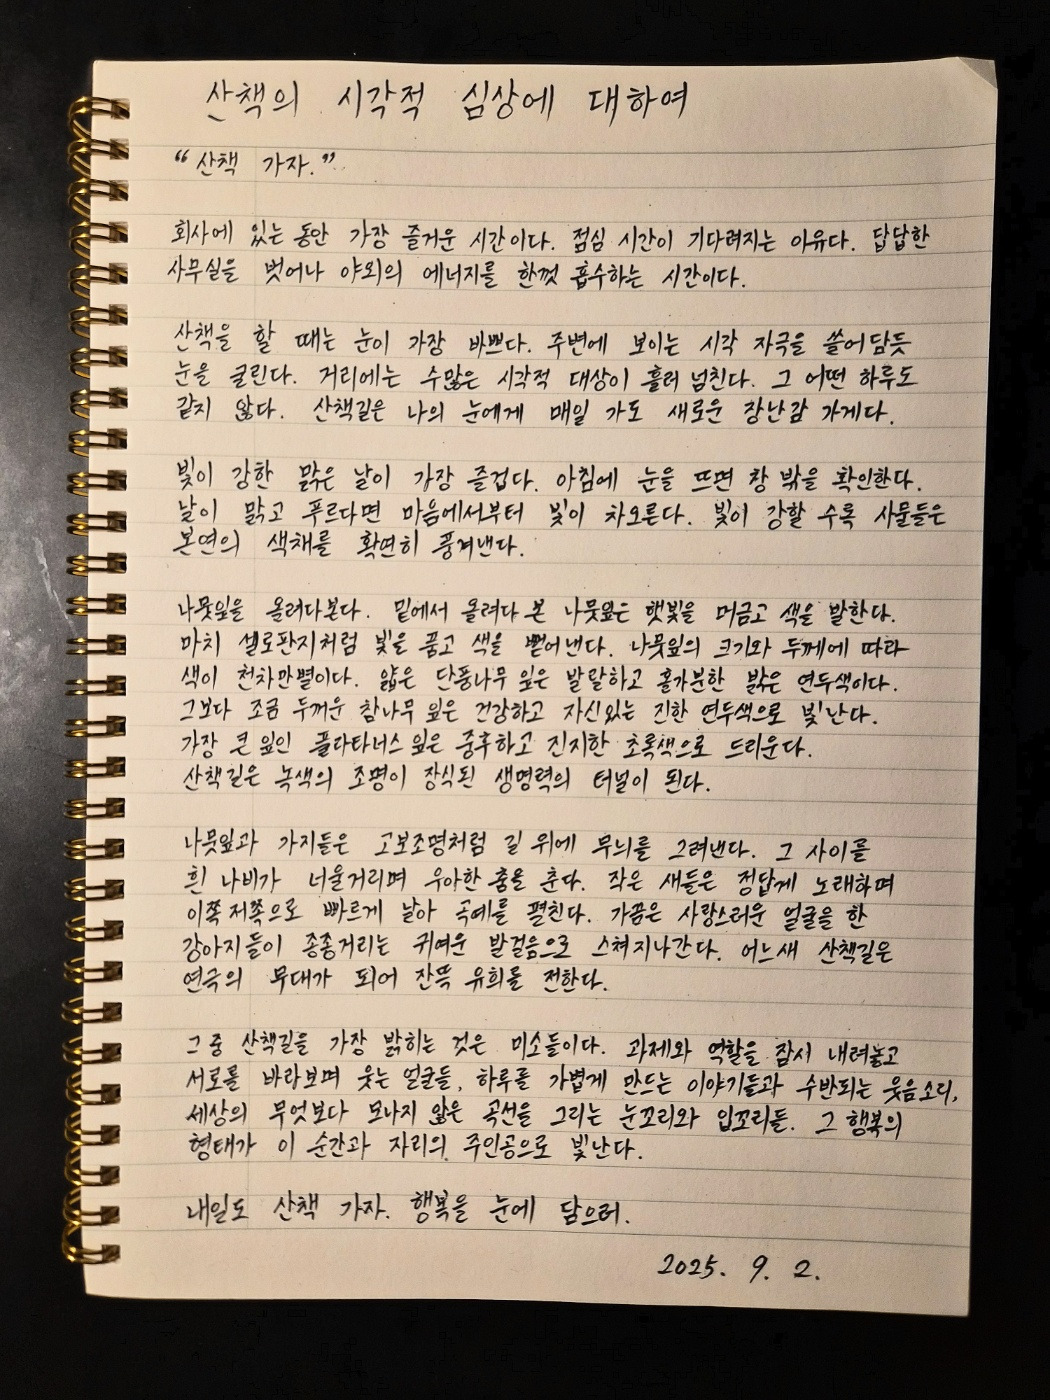 산책의 시각적 심상에 대하여
“산책 가자.”
회사에 있는 동안 가장 즐거운 시간이다. 점심 시간이 기다려지는 이유다. 답답한
사무실을 벗어나 야외의 에너지를 한껏 흡수하는 시간이다.
산책을 할 때는 눈이 가장 바쁘다. 주변에 보이는 시각 자극을 쓸어담듯
눈을 굴린다. 거리에는 수많은 시각적 대상이 흘러 넘친다. 그 어떤 하루도
같지 않다. 산책길은 나의 눈에게 매일 가도 새로운 장난감 가게다.
빛이 강한 맑은 날이 가장 즐겁다. 아침에 눈을 뜨면 창 밖을 확인한다.
날이 맑고 푸르다면 마음에서부터 빛이 차오른다. 빛이 강할 수록 사물들은
본연의 색채를 확연히 풍겨낸다.
나뭇잎을 올려다본다. 밑에서 올려다 본 나뭇잎은 햇빛을 머금고 색을 발한다.
마치 셀로판지처럼 빛을 품고 색을 뻗어낸다. 나뭇잎의 크기와 두께에 따라
색이 천차만별이다. 얇은 단풍나무 잎은 발랄하고 홀가분한 밝은 연두색이다.
그보다 조금 두꺼운 참나무 잎은 건강하고 자신있는 진한 연두색으로 빛난다.
가장 큰 잎인 플라타너스 잎은 중후하고 진지한 초록색으로 드리운다.
산책길은 녹색의 조명이 장식된 생명력의 터널이 된다.
나뭇잎과 가지들은 고보조명처럼 길 위에 무늬를 그려낸다. 그 사이를
흰 나비가 너울거리며 우아한 춤을 춘다. 작은 새들은 정답게 노래하며
이쪽저쪽으로 빠르게 날아 곡예를 펼친다. 가끔은 사랑스러운 얼굴을 한
강아지들이 종종거리는 귀여운 발걸음으로 스쳐지나간다. 어느새 산책길은
연극의 무대가 되어 잔뜩 유희를 전한다.
그중 산책길을 가장 밝히는 것은 미소들이다. 과제와 역할을 잠시 내려놓고
서로를 바라보며 웃는 얼굴들, 하루를 가볍게 만드는 이야기들과 수반되는 웃음소리,
세상의 무엇보다 모나지 않은 곡선을 그리는 눈꼬리와 입꼬리들. 그 행복의
형태가 이 순간과 자리의 주인공으로 빛난다.
내일도 산책 가자. 행복을 눈에 담으러.
2025. 9. 2.